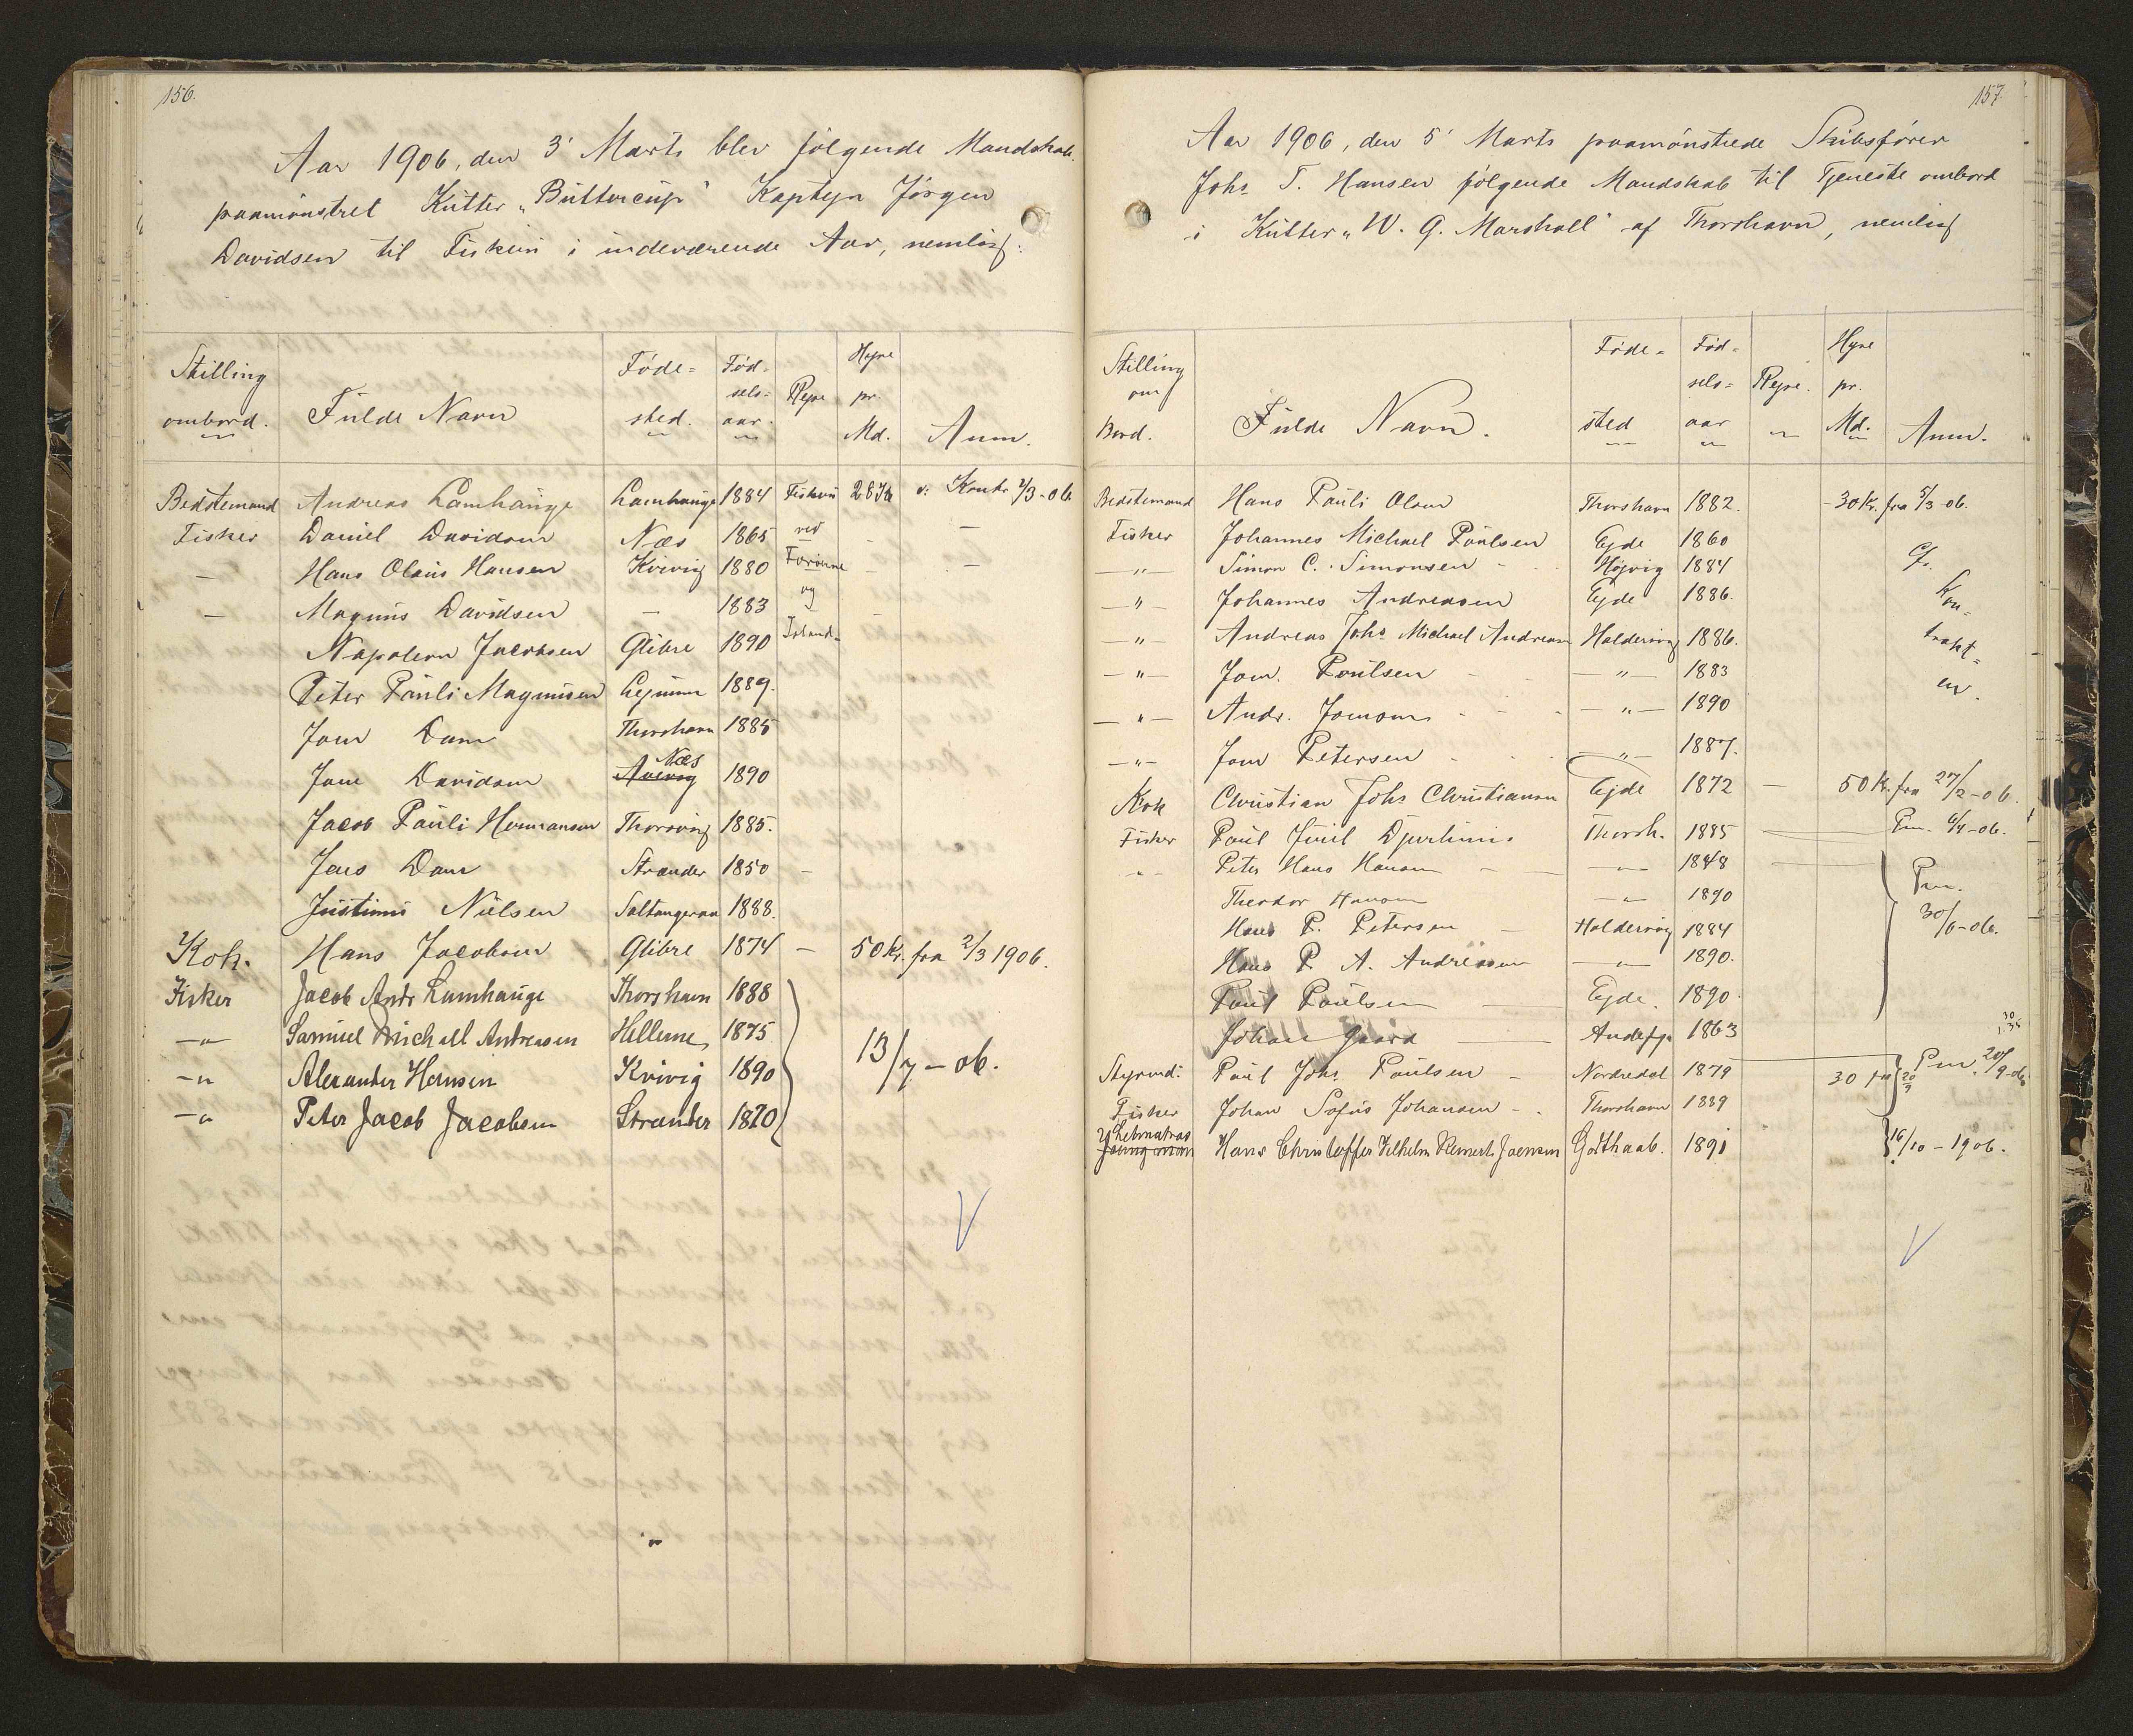 156.
Aar 1906, den 3' Marts blev følgende Mandskab
paamønstret Kutter „Buttercup" Kaptejn Jørgen
Davidsen til Fiskeri i indeværende Aar, nemlig:
Stilling ombord. Fulde Navn Føde=sted. Fød=sels=aar. Rejse Hyre pr. Md. Anm.
Bedstemand Andreas Lamhauge Lamhauge 1884 Fiskeri 28 Kr. Kontr. 2/3-06
Fisker Daniel Davidsen Næs 1865 ved
— Hans Olaus Hansen Kvivig 1880 Færøerne — —
— Magnus Davidsen — 1883 og
Napoleon Jacobsen Glibre 1890 Island
Peter Pauli Magnusen Lejnum 1889.
Joen Dam Thorshavn 1885
Joen Davidsen Næs 1890
Jacob Pauli Hermansen Thorsvig 1885.
Jens Dam Strander 1850 —
Justinus Nielsen Saltangeraa 1888.
Kok. Hans Jacobsen Glibre 1874 — 50 Kr. fra 2/3 1906.
Fisker Jacob Andr Lamhauge Thorshavn 1888
—"— Samuel Michael Andreasen Hellerne 1875
—"— Alexander Hansen Kvivig 1890 13/7-06.
—"— Peter Jacob Jacobsen Strander 1870
157.
Aar 1906, den 5' Marts paamønstrede Skibsfører
Johs T. Hansen følgende Mandskab til Tjeneste ombord
i Kutter „W. G. Marshall" af Thorshavn, nemlig
Stilling om Bord. Fulde Navn. Føde=sted Fød=sels=aar Rejse. Hyre pr. Md. Anm.
Bedstemand Hans Pauli Olsen Thorshavn 1882. - 30 Kr. fra 5/3-06.
Fisker Johannes Michael Poulsen Ejde 1860
—"— Simon C. Simonsen Højvig 1884 Cfr.
—"— Johannes Andreasen Ejde 1886. Kon=
—"— Andreas Johs Michael Andreasen Haldersvig 1886. trakt=
—"— Joen Poulsen —"— 1883 en.
—"— Andr. Joensen —"— 1890
—"— Joen Petersen —"— 1887.
Kok Christian Johs Christiansen Ejde 1872 — 50 Kr. fra 27/2-06.
Fisker Paul Juul Djurhuus Thorsh. 1885 Pm. 6/4-06.
—"— Peter Hans Hansen —"— 1888
Theodor Hansen —"— 1890 Pm.
Hans P. Petersen Haldersvig 1884 30/6-06.
Hans P. A. Andreasen —"— 1890.
Paul Poulsen Ejde. 1890.
Johan Gaard 1863
Styrmd: Paul Johs Poulsen Nordredal 1879 30 Pm. 20/9-06
Fisker Johan Sofus Johansen Thorshavn 1889
Letmatros Hans Christoffer Vilhelm Joensen Godthaab. 1891 16/10-1906.